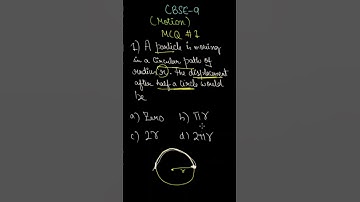 CBSE-9
(Motion)
MCQ #1
1) A particle is moving
in a circular path of
radius (r). the displacement
after half a circle would
be
a) Zero b) πr
c) 2r d) 2πr
r